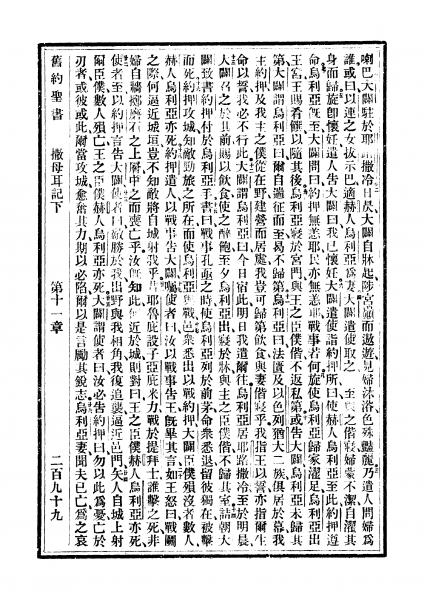 喇巴大闢駐於耶路撒冷日昃大闢自牀起陟宮巔而遨遊見婦沐浴色殊豔麗乃遣人問婦爲
誰或曰以連之女拔示巴適赫人烏利亞爲妻大闢遣使取之至與之偕寢婦蒙不潔自濯其
身而歸旋卽懷妊遣人告大闢曰我已懷妊大闢遣使詣約押所曰使赫人烏利亞至此約押遵
命烏利亞旣至大闢問曰約押無恙耶民亦無恙耶戰事若何旋使烏利亞歸家濯足烏利亞出
王宮王賜肴饌以隨其後烏利亞寢於宮門與王之臣僕偕不返私第或告大闢烏利亞未歸其
第大闢謂烏利亞曰爾自遄征而至曷不歸第烏利亞曰法匱及以色列猶大二族俱居於幕我
主約押及我主之僕從在野建營而居處我豈可歸第飲食與妻偕寢乎我指王以誓亦指爾生
命以誓我必不行此大闢謂烏利亞曰今日宿此明日我遣爾往烏利亞居耶路撒冷至於明晨
大闢召之於其前賜以飲食使之醉飽至夕烏利亞出寢於牀與主之臣僕偕不歸其室詰朝大
闢致書約押付於烏利亞手書曰戰事孔亟之時使烏利亞列於前茅命衆悉退留彼獨在被擊
而死約押攻城知敵勁旅之所在而使烏利亞與戰邑衆悉出以戰約押大闢臣僕殞沒者數人
赫人烏利亞亦死約押遣人以戰事告大闢囑使者曰汝以戰事告王旣畢其言如王怒曰戰鬭
之際何逼近城垣豈不知敵將自城射我乎昔耶魯庇設子亞庇米力戰於提拜士誰擊之死非
婦自牆擲磨石之上層中之而喪亡乎汝何如此附近於城則對曰王之臣僕赫人烏利亞亦死
使者至以約押言告大闢使者曰敵勝於我出野與我相角我復追襲逼近邑門矢人自城上射
爾臣僕數人殞亡王之臣僕赫人烏利亞亦死大闢謂使者曰汝必告約押曰勿以此爲憂亡於
刃者或彼或此爾當攻城愈奮其力期以必陷爾以是言勵其銳志烏利亞妻聞夫已亡爲之哀
舊約聖書 撒母耳記下 第十一章 二百九十九